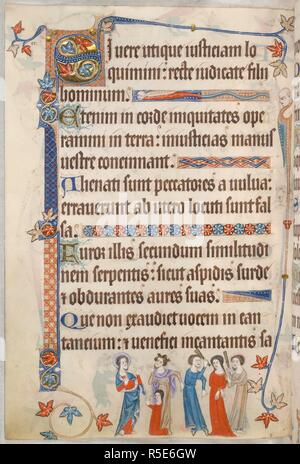 Si uere utique iusticiam lo
quimini: recte iudicate filii
hominum.
Etenim in corde iniquitates ope
ramini in terra: iniusticias manus
uestre concinnant.
Alienati sunt peccatores a uulua:
errauerunt ab utero locuti sunt fal
sa.
Furor illis secundum similitudi
nem serpentis: sicut aspidis surde
⁊ obdurantes aures suas.
Que non exaudiet uocem in can
tancium: ⁊ uenefici incantantis sa
alamy
R5E6GW
www.alamy.com